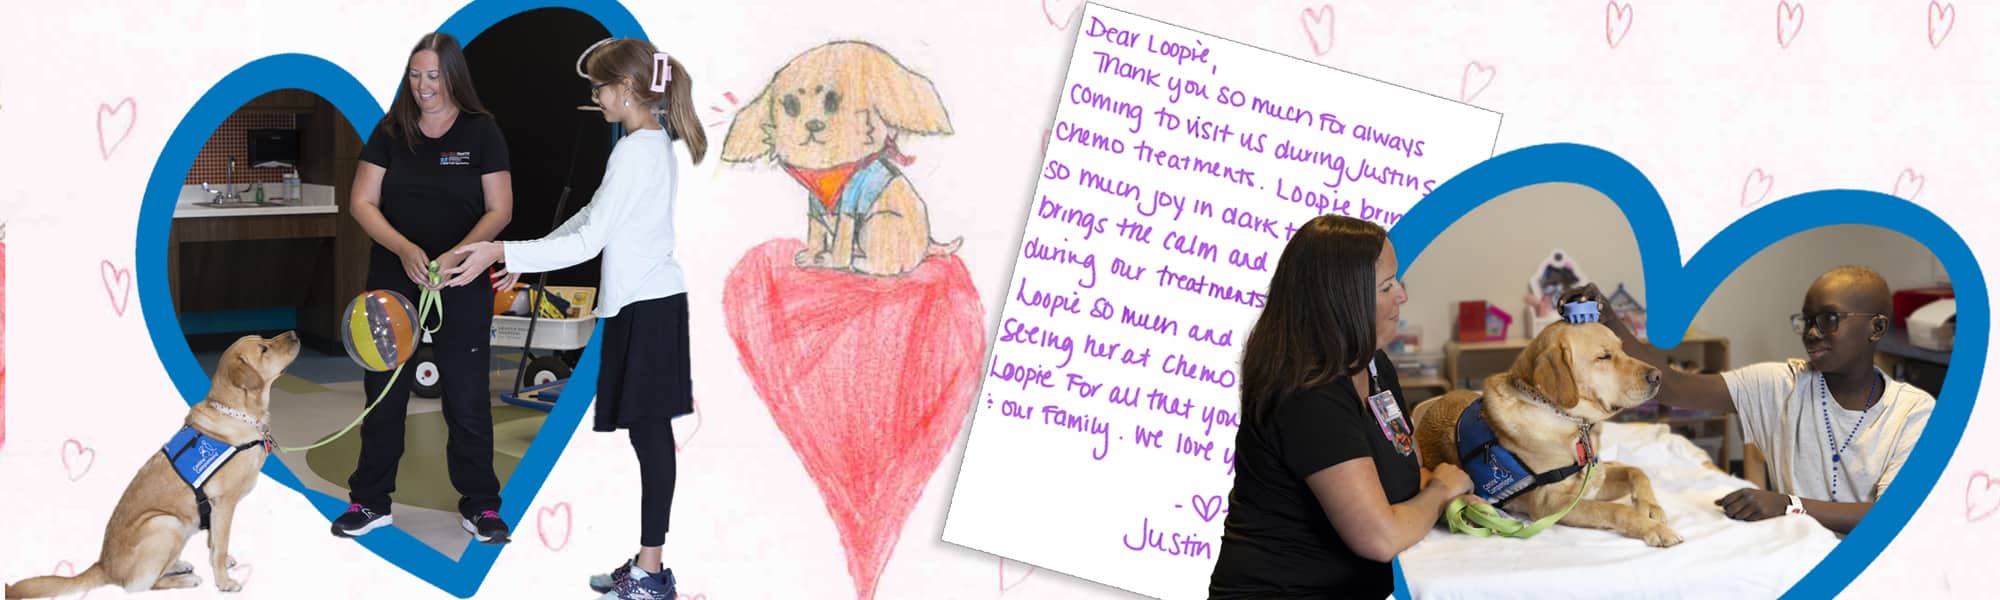 Dear Loopie,
Thank you so much for always
coming to visit us during Justins
chemo treatments. Loopie
so much joy in dark
brings the calm and
during our treatments
Loopie so much and
seeing her at chemo
Loopie For all that you
our Family. We love
-♡-
Justin
Canine
Companions
Canine
Companions